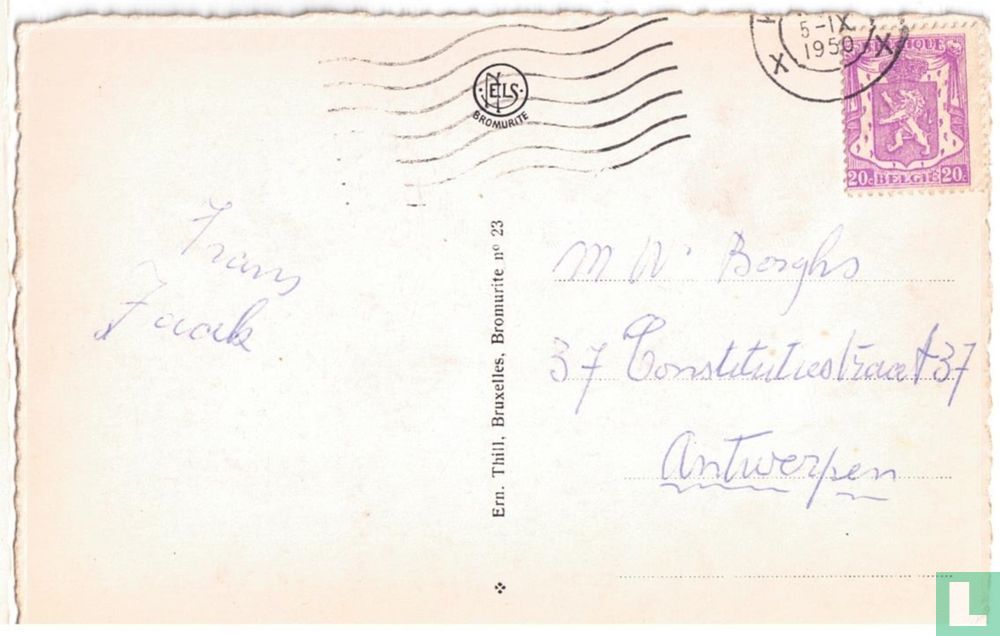 5-IX
1950
X X
BELGIQUE
20c BELGIE 20c
NELS
BROMURITE
Frans
Jaak
Ern. Thill, Bruxelles, Bromurite nº 23
M Rr Borghs
37 Constitutiestraat 37
Antwerpen
L